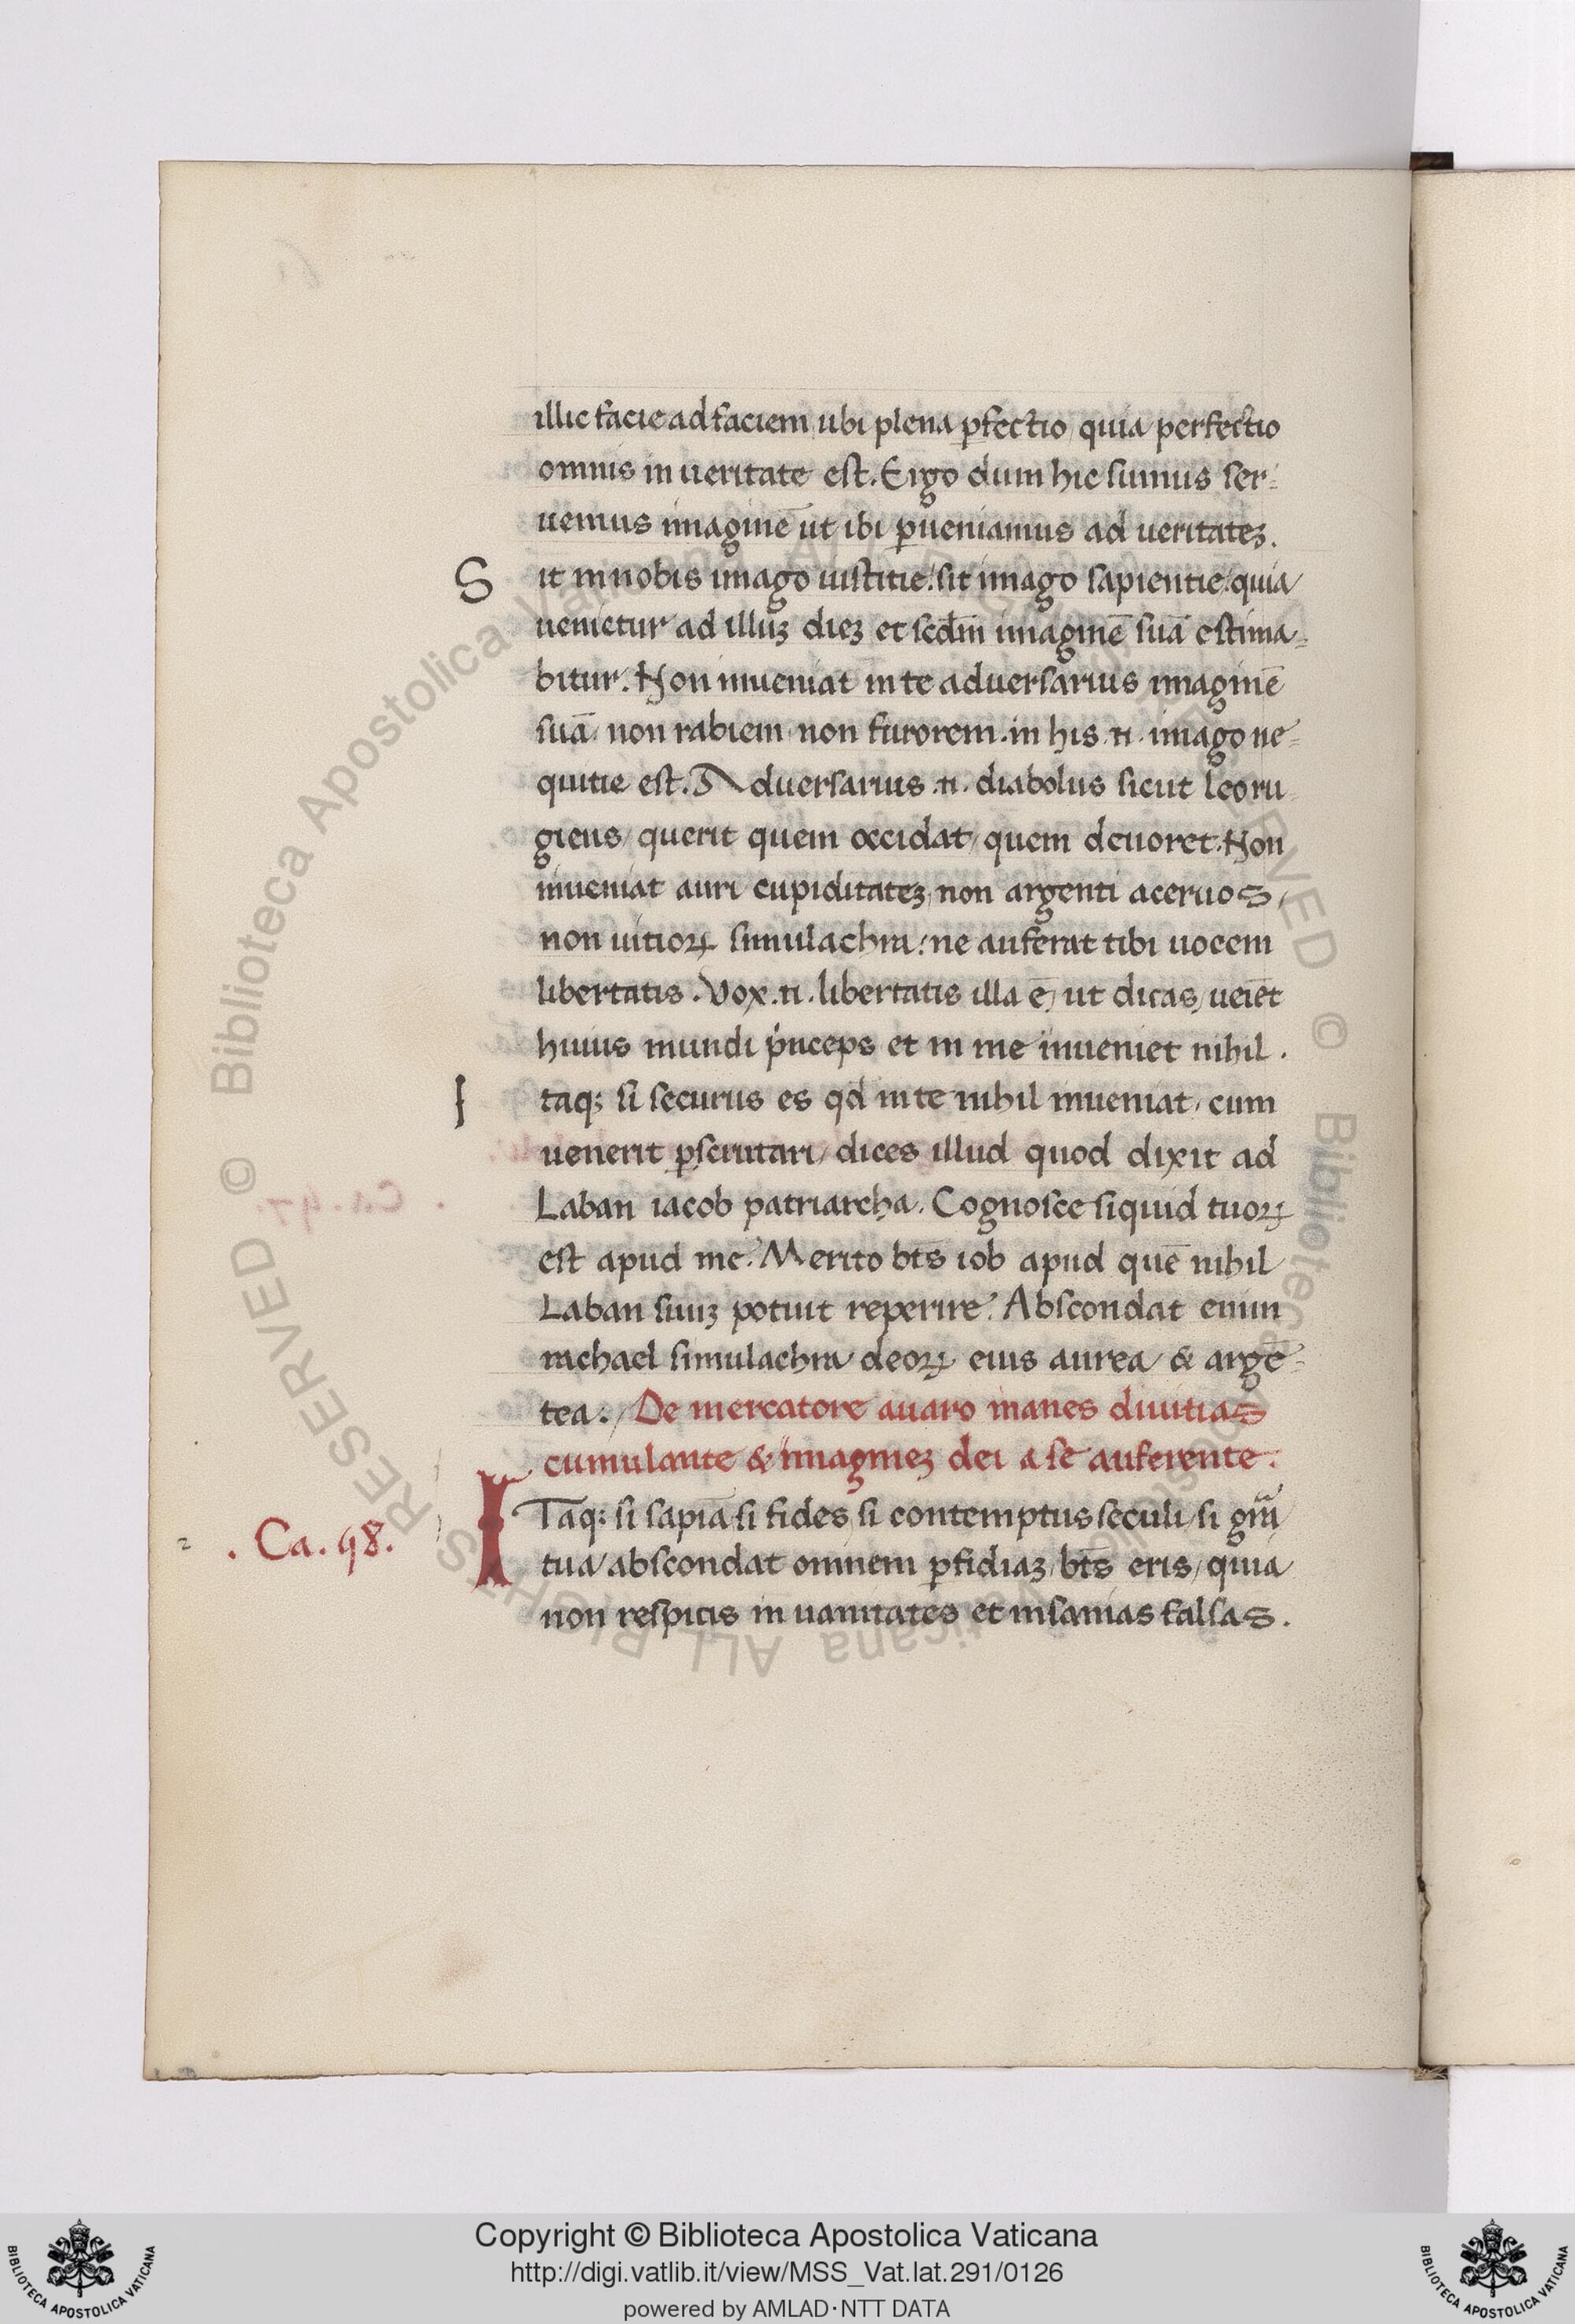 illic facie ad faciem ubi plena ꝑfectio quia perfectio
omnis in ueritate est. Ergo dum hic sumus ser⸗
uemus imaginē ut ibi ꝑueniamus ad ueritateꝫ.
Sit in nobis imago iustitie: sit imago sapientie: quia
uenietur ad illuꝫ dieꝫ et scdm̄ imaginē suā estima⸗
bitur. Non inueniat in te aduersarius imaginē
suā/ non rabiem/ non furorem. in his .n. imago ne⸗
quitie est. Aduersarius .n. diabolus sicut leo ru⸗
giens/ querit quem occidat/ quem deuoret. Non
inueniat auri cupiditateꝫ/ non argenti aceruos/
non uitioꝝ simulachra: ne auferat tibi uocem
libertatis. Vox .n. libertatis illa ē/ ut dicas/ ueīet
huius mundi pͥnceps et in me inueniet nihil.
Itaqꝫ si securus es qd̄ in te nihil inueniat/ cum
uenerit ꝑscrutari/ dices illud quod dixit ad
Laban iacob patriarcha. Cognosce siquid tuoꝝ
est apud me. Merito bt̄s iob apud quē nihil
Laban suuꝫ potuit reperire. Abscondat enim
rachael simulachra deoꝝ eius aurea & argē⸗
tea. De mercatore auaro inanes diuitias
cumulante & imagineꝫ dei a se auferente.
. Ca. 98.
ITaqꝫ si sapīa si fides si contemptus seculi/ si gr̄a
tua/ abscondat omnem ꝑfidiaꝫ/ bt̄s eris/ quia
non respicis in uanitates et insanias falsas.
Copyright © Biblioteca Apostolica Vaticana
http://digi.vatlib.it/view/MSS_Vat.lat.291/0126
powered by AMLAD·NTT DATA
BIBLIOTECA APOSTOLICA VATICANA
BIBLIOTECA APOSTOLICA VATICANA
© Biblioteca Apostolica Vaticana ALL RIGHTS RESERVED
© Biblioteca Apostolica Vaticana ALL RIGHTS RESERVED